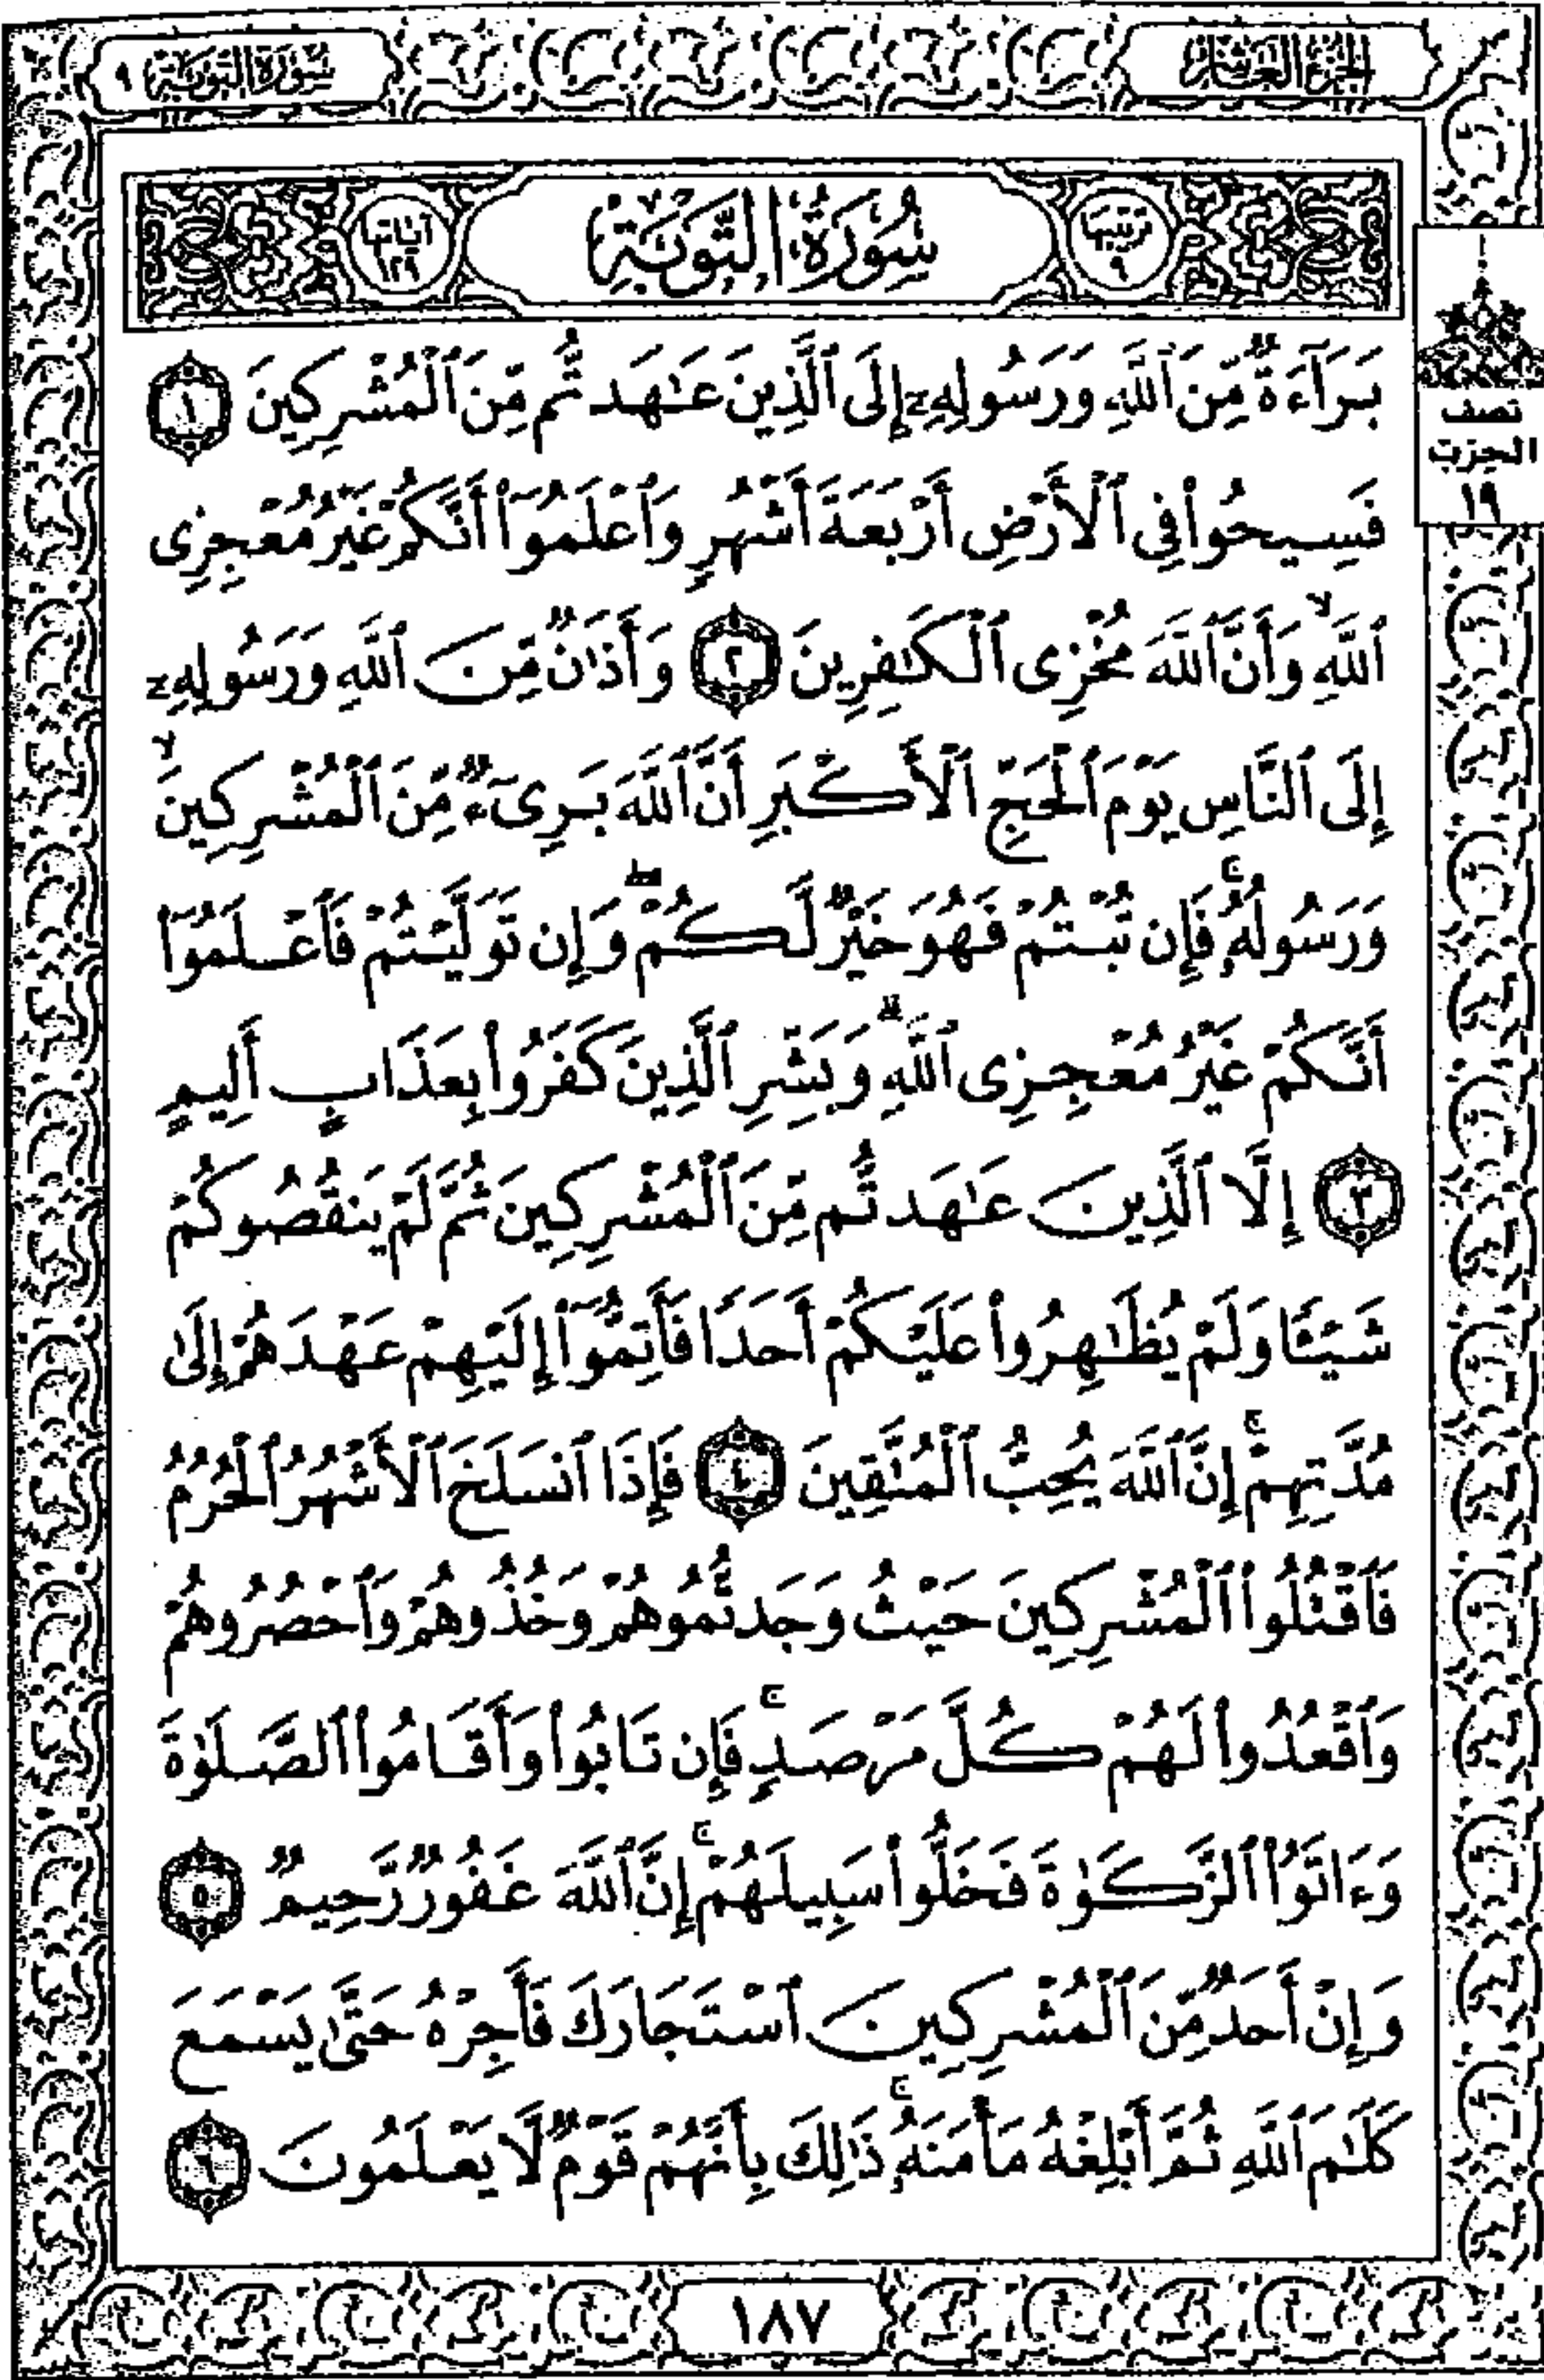 الجزء العاشر
سورة التوبة ٩
ترتيبها ٩
سُورَةُ التَّوْبَةِ
آياتها ١٢٩
نصف
الحزب
١٩
بَرَآءَةٌ مِّنَ ٱللَّهِ وَرَسُولِهِۦٓ إِلَى ٱلَّذِينَ عَٰهَدتُّم مِّنَ ٱلْمُشْرِكِينَ ١
فَسِيحُوا۟ فِى ٱلْأَرْضِ أَرْبَعَةَ أَشْهُرٍ وَٱعْلَمُوٓا۟ أَنَّكُمْ غَيْرُ مُعْجِزِى
ٱللَّهِ ۙ وَأَنَّ ٱللَّهَ مُخْزِى ٱلْكَٰفِرِينَ ٢ وَأَذَٰنٌ مِّنَ ٱللَّهِ وَرَسُولِهِۦٓ
إِلَى ٱلنَّاسِ يَوْمَ ٱلْحَجِّ ٱلْأَكْبَرِ أَنَّ ٱللَّهَ بَرِىٓءٌ مِّنَ ٱلْمُشْرِكِينَ ۙ
وَرَسُولُهُۥ ۚ فَإِن تُبْتُمْ فَهُوَ خَيْرٌ لَّكُمْ ۖ وَإِن تَوَلَّيْتُمْ فَٱعْلَمُوٓا۟
أَنَّكُمْ غَيْرُ مُعْجِزِى ٱللَّهِ ۗ وَبَشِّرِ ٱلَّذِينَ كَفَرُوا۟ بِعَذَابٍ أَلِيمٍ
٣ إِلَّا ٱلَّذِينَ عَٰهَدتُّم مِّنَ ٱلْمُشْرِكِينَ ثُمَّ لَمْ يَنقُصُوكُمْ
شَيْـًٔا وَلَمْ يُظَٰهِرُوا۟ عَلَيْكُمْ أَحَدًا فَأَتِمُّوٓا۟ إِلَيْهِمْ عَهْدَهُمْ إِلَىٰ
مُدَّتِهِمْ ۚ إِنَّ ٱللَّهَ يُحِبُّ ٱلْمُتَّقِينَ ٤ فَإِذَا ٱنسَلَخَ ٱلْأَشْهُرُ ٱلْحُرُمُ
فَٱقْتُلُوا۟ ٱلْمُشْرِكِينَ حَيْثُ وَجَدتُّمُوهُمْ وَخُذُوهُمْ وَٱحْصُرُوهُمْ
وَٱقْعُدُوا۟ لَهُمْ كُلَّ مَرْصَدٍ ۚ فَإِن تَابُوا۟ وَأَقَامُوا۟ ٱلصَّلَوٰةَ
وَءَاتَوُا۟ ٱلزَّكَوٰةَ فَخَلُّوا۟ سَبِيلَهُمْ ۚ إِنَّ ٱللَّهَ غَفُورٌ رَّحِيمٌ ٥
وَإِنْ أَحَدٌ مِّنَ ٱلْمُشْرِكِينَ ٱسْتَجَارَكَ فَأَجِرْهُ حَتَّىٰ يَسْمَعَ
كَلَٰمَ ٱللَّهِ ثُمَّ أَبْلِغْهُ مَأْمَنَهُۥ ۚ ذَٰلِكَ بِأَنَّهُمْ قَوْمٌ لَّا يَعْلَمُونَ ٦
١٨٧